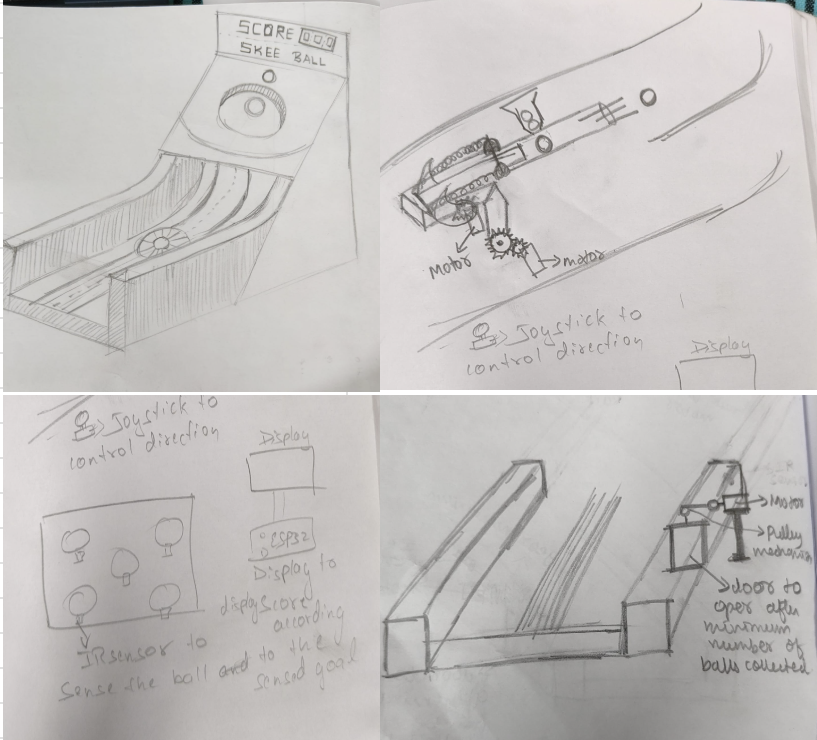 SCORE 000
SKEE BALL
Motor
motor
Joystick to
control direction
Display
Joystick to
control direction
Display
ESP32
Display to
display score
according
to the
sensed goal
IR sensor to
Sense the ball and
Motor
Pulley
mechanism
door to
open after
minimum
number of
balls collected